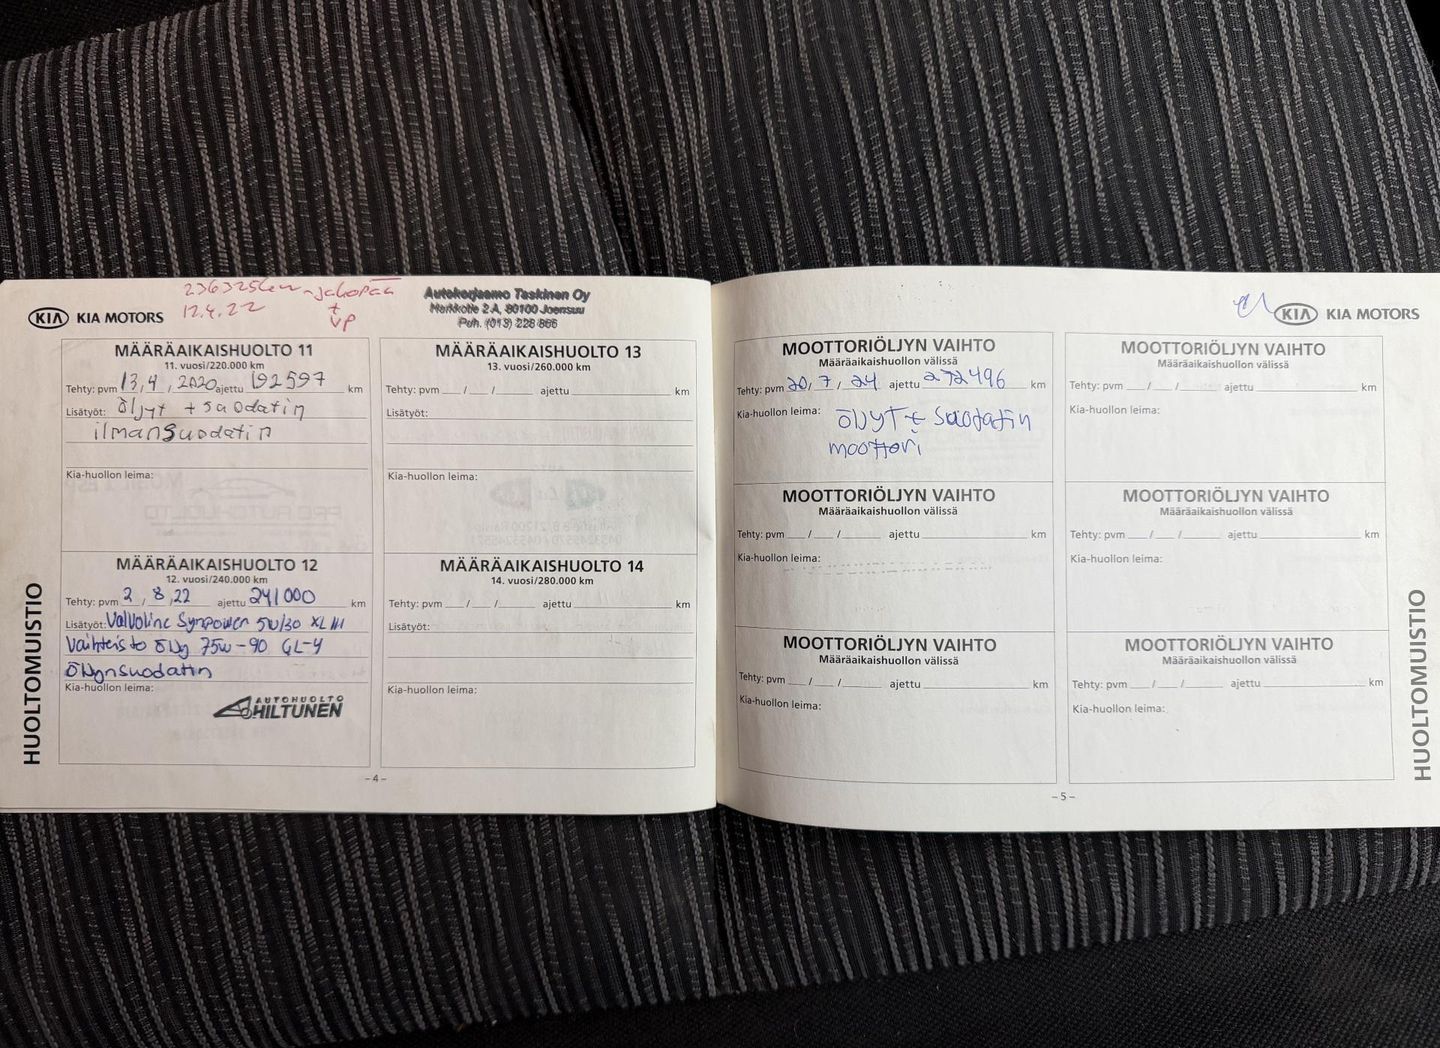 236325km - jakopää
12.4.22 + vp
Autokorjaamo Taskinen Oy
Harkkotie 2 A, 80100 Joensuu
Puh. (013) 228 866
KIA KIA MOTORS
MÄÄRÄAIKAISHUOLTO 11
11. vuosi/220.000 km
Tehty: pvm 13, 4, 2020 ajettu 192597 km
Lisätyöt: öljyt + suodatin
ilmansuodatin
Kia-huollon leima:
MÄÄRÄAIKAISHUOLTO 12
12. vuosi/240.000 km
Tehty: pvm 2, 8, 22 ajettu 241000 km
Lisätyöt: Valvoline Synpower 5W/30 XL III
Vaihteisto öljy 75w-90 GL-4
Öljynsuodatin
Kia-huollon leima:
AUTOHUOLTO
HILTUNEN
MÄÄRÄAIKAISHUOLTO 13
13. vuosi/260.000 km
Tehty: pvm __/__/____ ajettu ____ km
Lisätyöt:
Kia-huollon leima:
MÄÄRÄAIKAISHUOLTO 14
14. vuosi/280.000 km
Tehty: pvm __/__/____ ajettu ____ km
Lisätyöt:
Kia-huollon leima:
HUOLTOMUISTIO
– 4 –
KIA KIA MOTORS
MOOTTORIÖLJYN VAIHTO
Määräaikaishuollon välissä
Tehty: pvm 20, 7, 24 ajettu 272496 km
Kia-huollon leima: öljyt + suodatin
moottori
MOOTTORIÖLJYN VAIHTO
Määräaikaishuollon välissä
Tehty: pvm __/__/____ ajettu ____ km
Kia-huollon leima:
MOOTTORIÖLJYN VAIHTO
Määräaikaishuollon välissä
Tehty: pvm __/__/____ ajettu ____ km
Kia-huollon leima:
MOOTTORIÖLJYN VAIHTO
Määräaikaishuollon välissä
Tehty: pvm __/__/____ ajettu ____ km
Kia-huollon leima:
MOOTTORIÖLJYN VAIHTO
Määräaikaishuollon välissä
Tehty: pvm __/__/____ ajettu ____ km
Kia-huollon leima:
MOOTTORIÖLJYN VAIHTO
Määräaikaishuollon välissä
Tehty: pvm __/__/____ ajettu ____ km
Kia-huollon leima:
HUOLTOMUISTIO
– 5 –